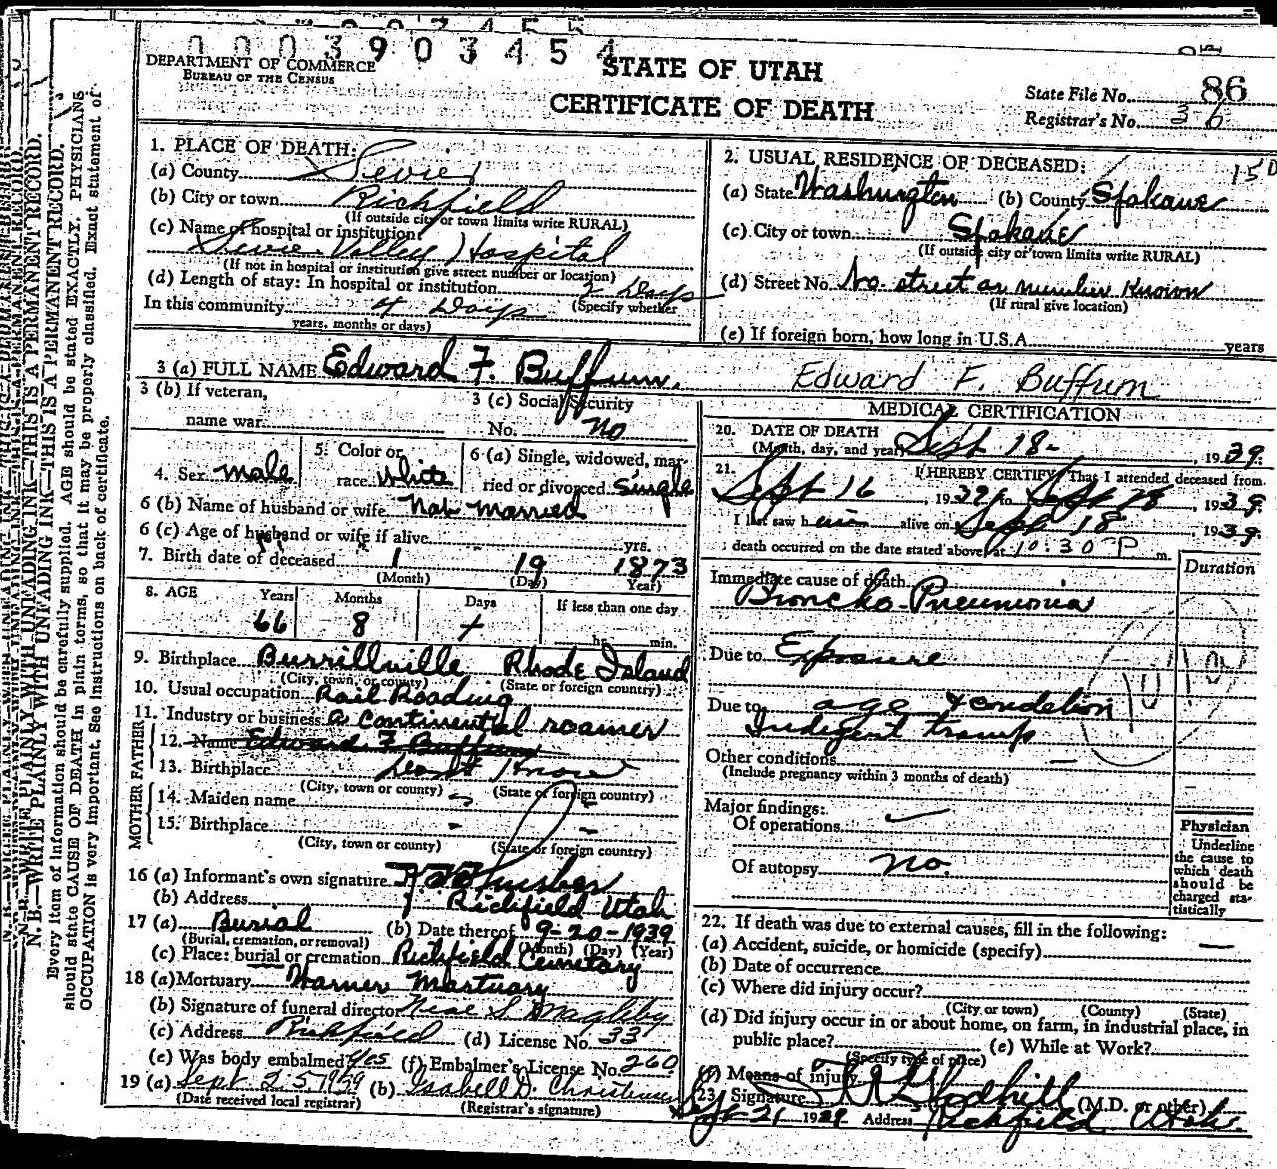 0003903454
DEPARTMENT OF COMMERCE
BUREAU OF THE CENSUS
STATE OF UTAH
CERTIFICATE OF DEATH
State File No. 86
Registrar's No. 36
1. PLACE OF DEATH:
(a) County Sevier
(b) City or town Richfield
(If outside city or town limits write RURAL)
(c) Name of hospital or institution:
Sevier Valley Hospital
(If not in hospital or institution give street number or location)
(d) Length of stay: In hospital or institution 2 Days
In this community 4 Days (Specify whether
years, months or days)
2. USUAL RESIDENCE OF DECEASED: 150
(a) State Washington (b) County Spokane
(c) City or town Spokane
(If outside city or town limits write RURAL)
(d) Street No. No street or number Known
(If rural give location)
(e) If foreign born, how long in U.S.A. years
3 (a) FULL NAME Edward F. Buffum. Edward F. Buffum
3 (b) If veteran,
name war
3 (c) Social Security
No. no
4. Sex male
5. Color or
race White
6 (a) Single, widowed, mar-
ried or divorced Single
6 (b) Name of husband or wife Not Married
6 (c) Age of husband or wife if alive yrs.
7. Birth date of deceased 1 19 1873
(Month) (Day) Year)
8. AGE Years Months Days If less than one day
66 8 hr. min.
9. Birthplace Burrillville Rhode Island
(City, town, or county) (State or foreign country)
10. Usual occupation Rail Roading
11. Industry or business a continential roamer
FATHER
12. Name Edward F Buffum
13. Birthplace Dont Know
(City, town or county) (State or foreign country)
MOTHER
14. Maiden name -
15. Birthplace - -
(City, town or county) (State or foreign country)
16 (a) Informant's own signature
(b) Address Richfield Utah
17 (a) Burial (b) Date thereof 9-20-1939
(Burial, cremation, or removal) (Month) (Day) (Year)
(c) Place: burial or cremation Richfield Cemetary
18 (a) Mortuary Warner Mortuary
(b) Signature of funeral director Neal S. Magleby
(c) Address Richfield (d) License No. 33
(e) Was body embalmed? yes (f) Embalmer's License No. 260
19 (a) Sept 25 1939 (b) Isabell D. Christensen
(Date received local registrar) (Registrar's signature)
MEDICAL CERTIFICATION
20. DATE OF DEATH
(Month, day, and year) Sept 18- , 1939.
21. I HEREBY CERTIFY, That I attended deceased from
Sept 16 , 1939, to Sept 18 , 1939.
I last saw him alive on Sept 18 1939.
death occurred on the date stated above, at 10:30 P m.
Duration
Immediate cause of death
Broncho-Pneumonia
Due to Exposure
Due to age & condetion
Indegent tramp
Other conditions —
(Include pregnancy within 3 months of death)
Major findings:
Of operations
Of autopsy no.
Physician
Underline
the cause to
which death
should be
charged sta-
tistically
22. If death was due to external causes, fill in the following:
(a) Accident, suicide, or homicide (specify) —
(b) Date of occurrence
(c) Where did injury occur?
(City or town) (County) (State)
(d) Did injury occur in or about home, on farm, in industrial place, in
public place? (e) While at Work?
(Specify type of place)
(f) Means of injury
23. Signature (M.D. or other)
Sept. 21 1939 Address Richfield Utah.
N. B.—WRITE PLAINLY WITH UNFADING INK—THIS IS A PERMANENT RECORD.
Every item of information should be carefully supplied. AGE should be stated EXACTLY. PHYSICIANS
should state CAUSE OF DEATH in plain terms, so that it may be properly classified. Exact statement of
OCCUPATION is very important. See instructions on back of certificate.